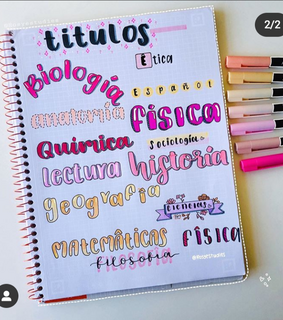 titulos
Ética
Biología
Español
anatomía
física
Química
Sociología
lectura historia
geografía
Ciencias
Matemáticas física
filosofía
2/2